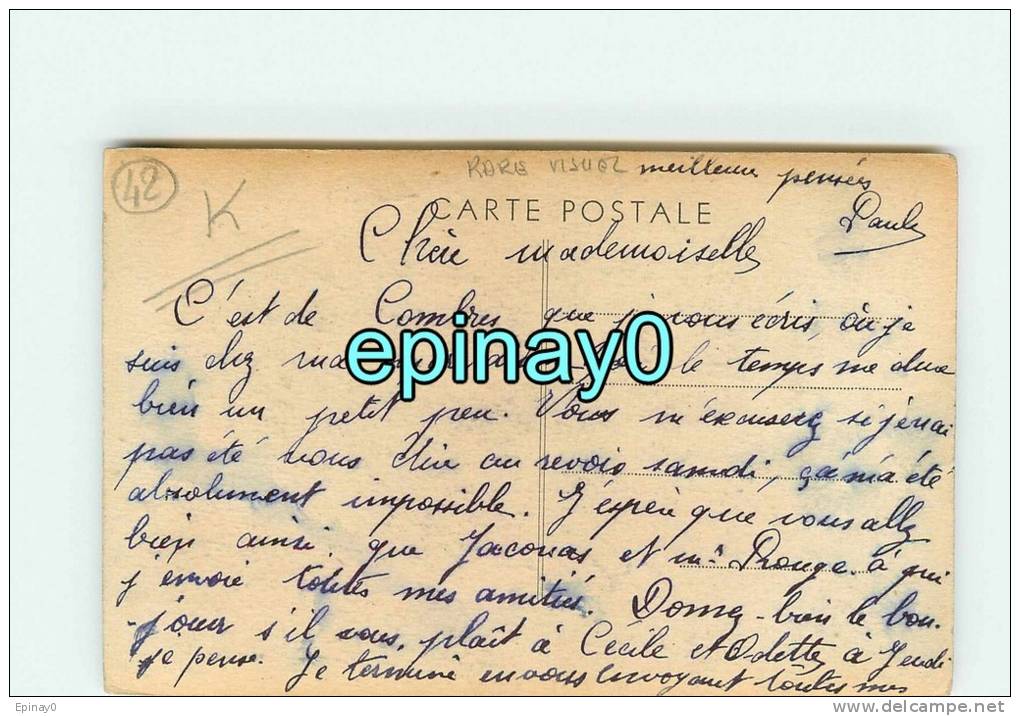 42
K
RARE VISUEL
meilleures pensées
Paule
CARTE POSTALE
Chère mademoiselle
C'est de Combres que je vous écris, où je
suis chez ma le temps me dure
bien un petit peu. Vous m'excuserez si je n'ai
pas été vous dire au revoir samedi, ça m'a été
absolument impossible. J'espère que vous allez
bien ainsi que et mr Rouge à qui
j'envoie toutes mes amitiés. Donnez-bien le bon-
jour s'il vous plaît à Cécile et Odette, à Jeudi
je pense. Je termine en vous envoyant toutes mes
epinay0
Epinay0
www.delcampe.net